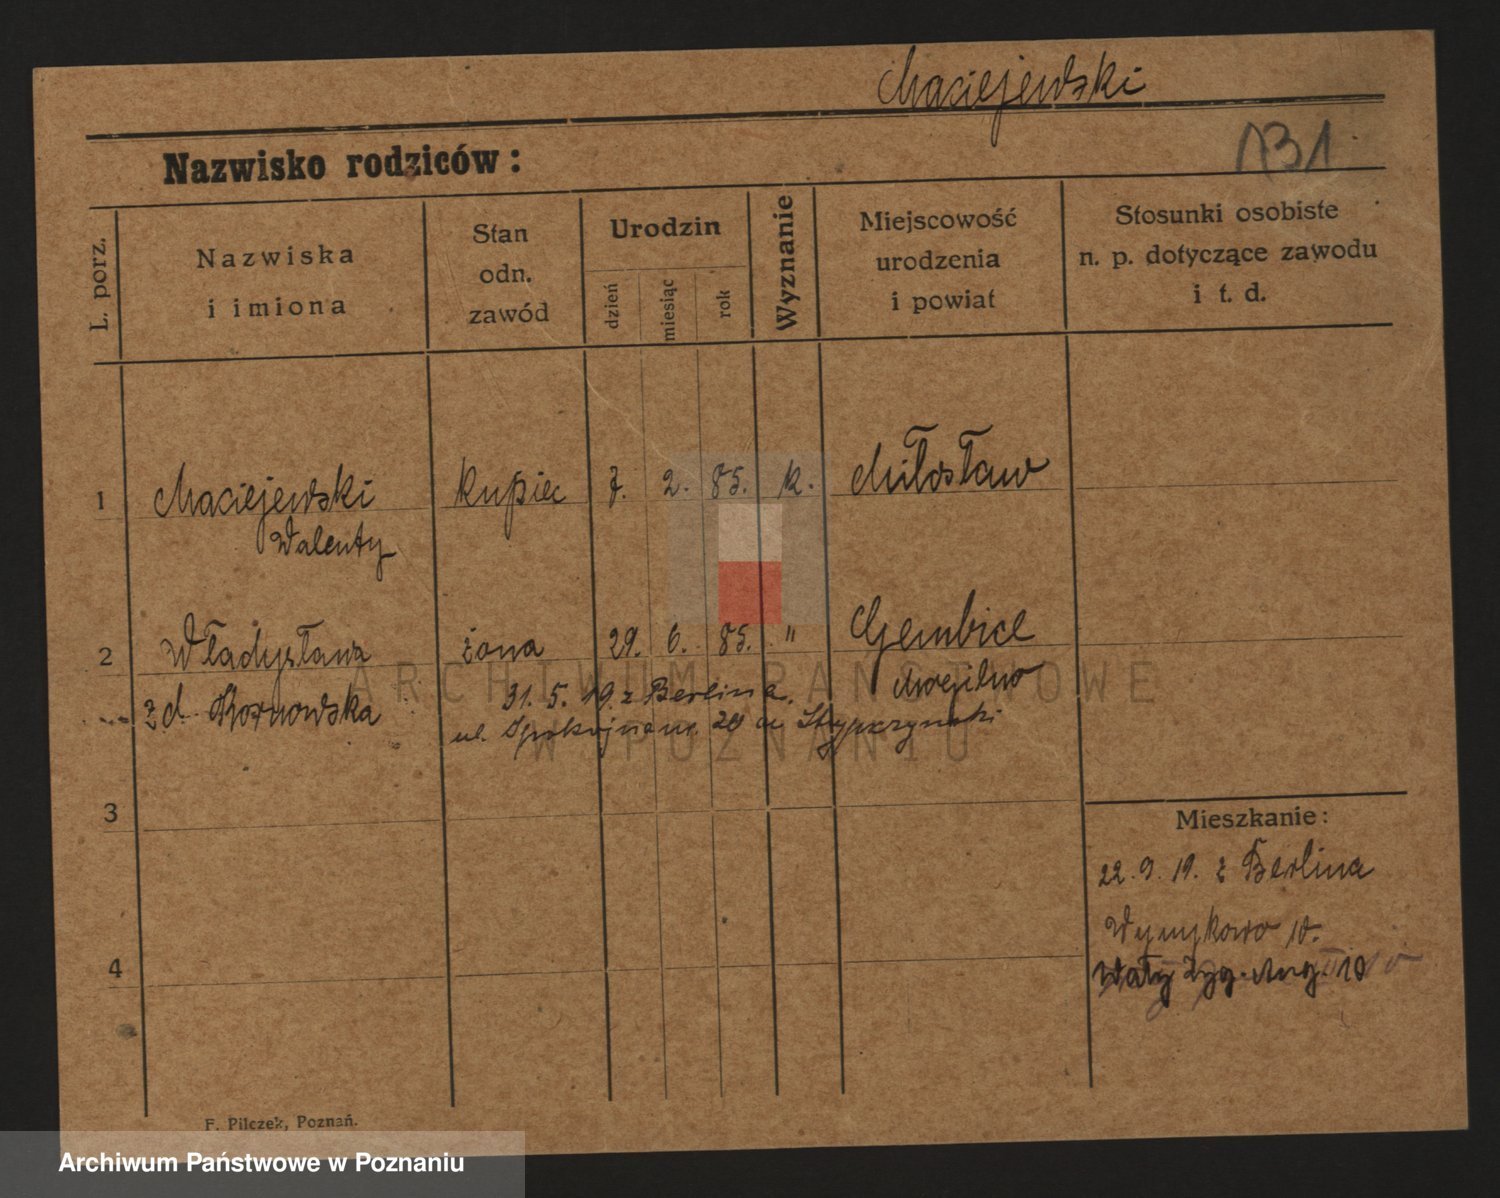 Maciejewski
131
Nazwisko rodziców:
L. porz.
Nazwiska
i imiona
Stan
odn.
zawód
Urodzin
dzień
miesiąc
rok
Wyznanie
Miejscowość
urodzenia
i powiat
Stosunki osobiste
n. p. dotyczące zawodu
i t. d.
1 Maciejewski kupiec 7. 2. 85. k. Miłosław
Walenty
2 Władysława żona 29. 6. 85. " Gembice
31. 5. 19. z Berlina. Mogilno
zd.
ul. Spokojna nr. 20 u
3
Mieszkanie:
22. 9. 19. z Berlina
10.
4
Wały Zyg. Aug. 10
F. Pilczek, Poznań.
ARCHIWUM PAŃSTWOWE
W POZNANIU
Archiwum Państwowe w Poznaniu